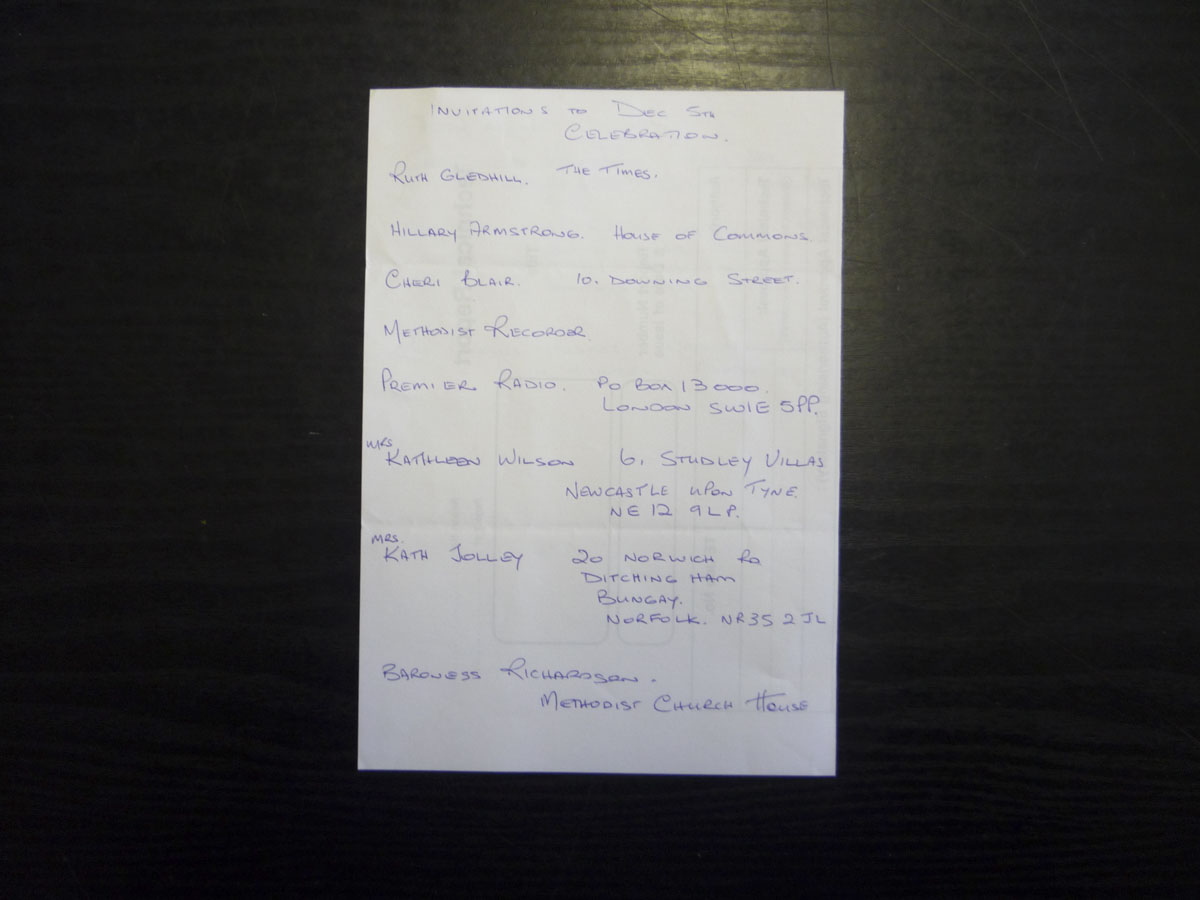 INVITATIONS TO DEC 5TH
CELEBRATION.
RUTH GLEDHILL. THE TIMES.
HILLARY ARMSTRONG. HOUSE OF COMMONS.
CHERI BLAIR. 10. DOWNING STREET.
METHODIST RECORDER
PREMIER RADIO. PO BOX 13000.
LONDON SW1E 5PP.
MRS KATHLEEN WILSON 6. STUDLEY VILLAS
NEWCASTLE UPON TYNE.
NE12 9LP.
MRS. KATH JOLLEY 20 NORWICH RD
DITCHING HAM
BUNGAY.
NORFOLK. NR35 2JL
BARONESS RICHARDSON.
METHODIST CHURCH HOUSE